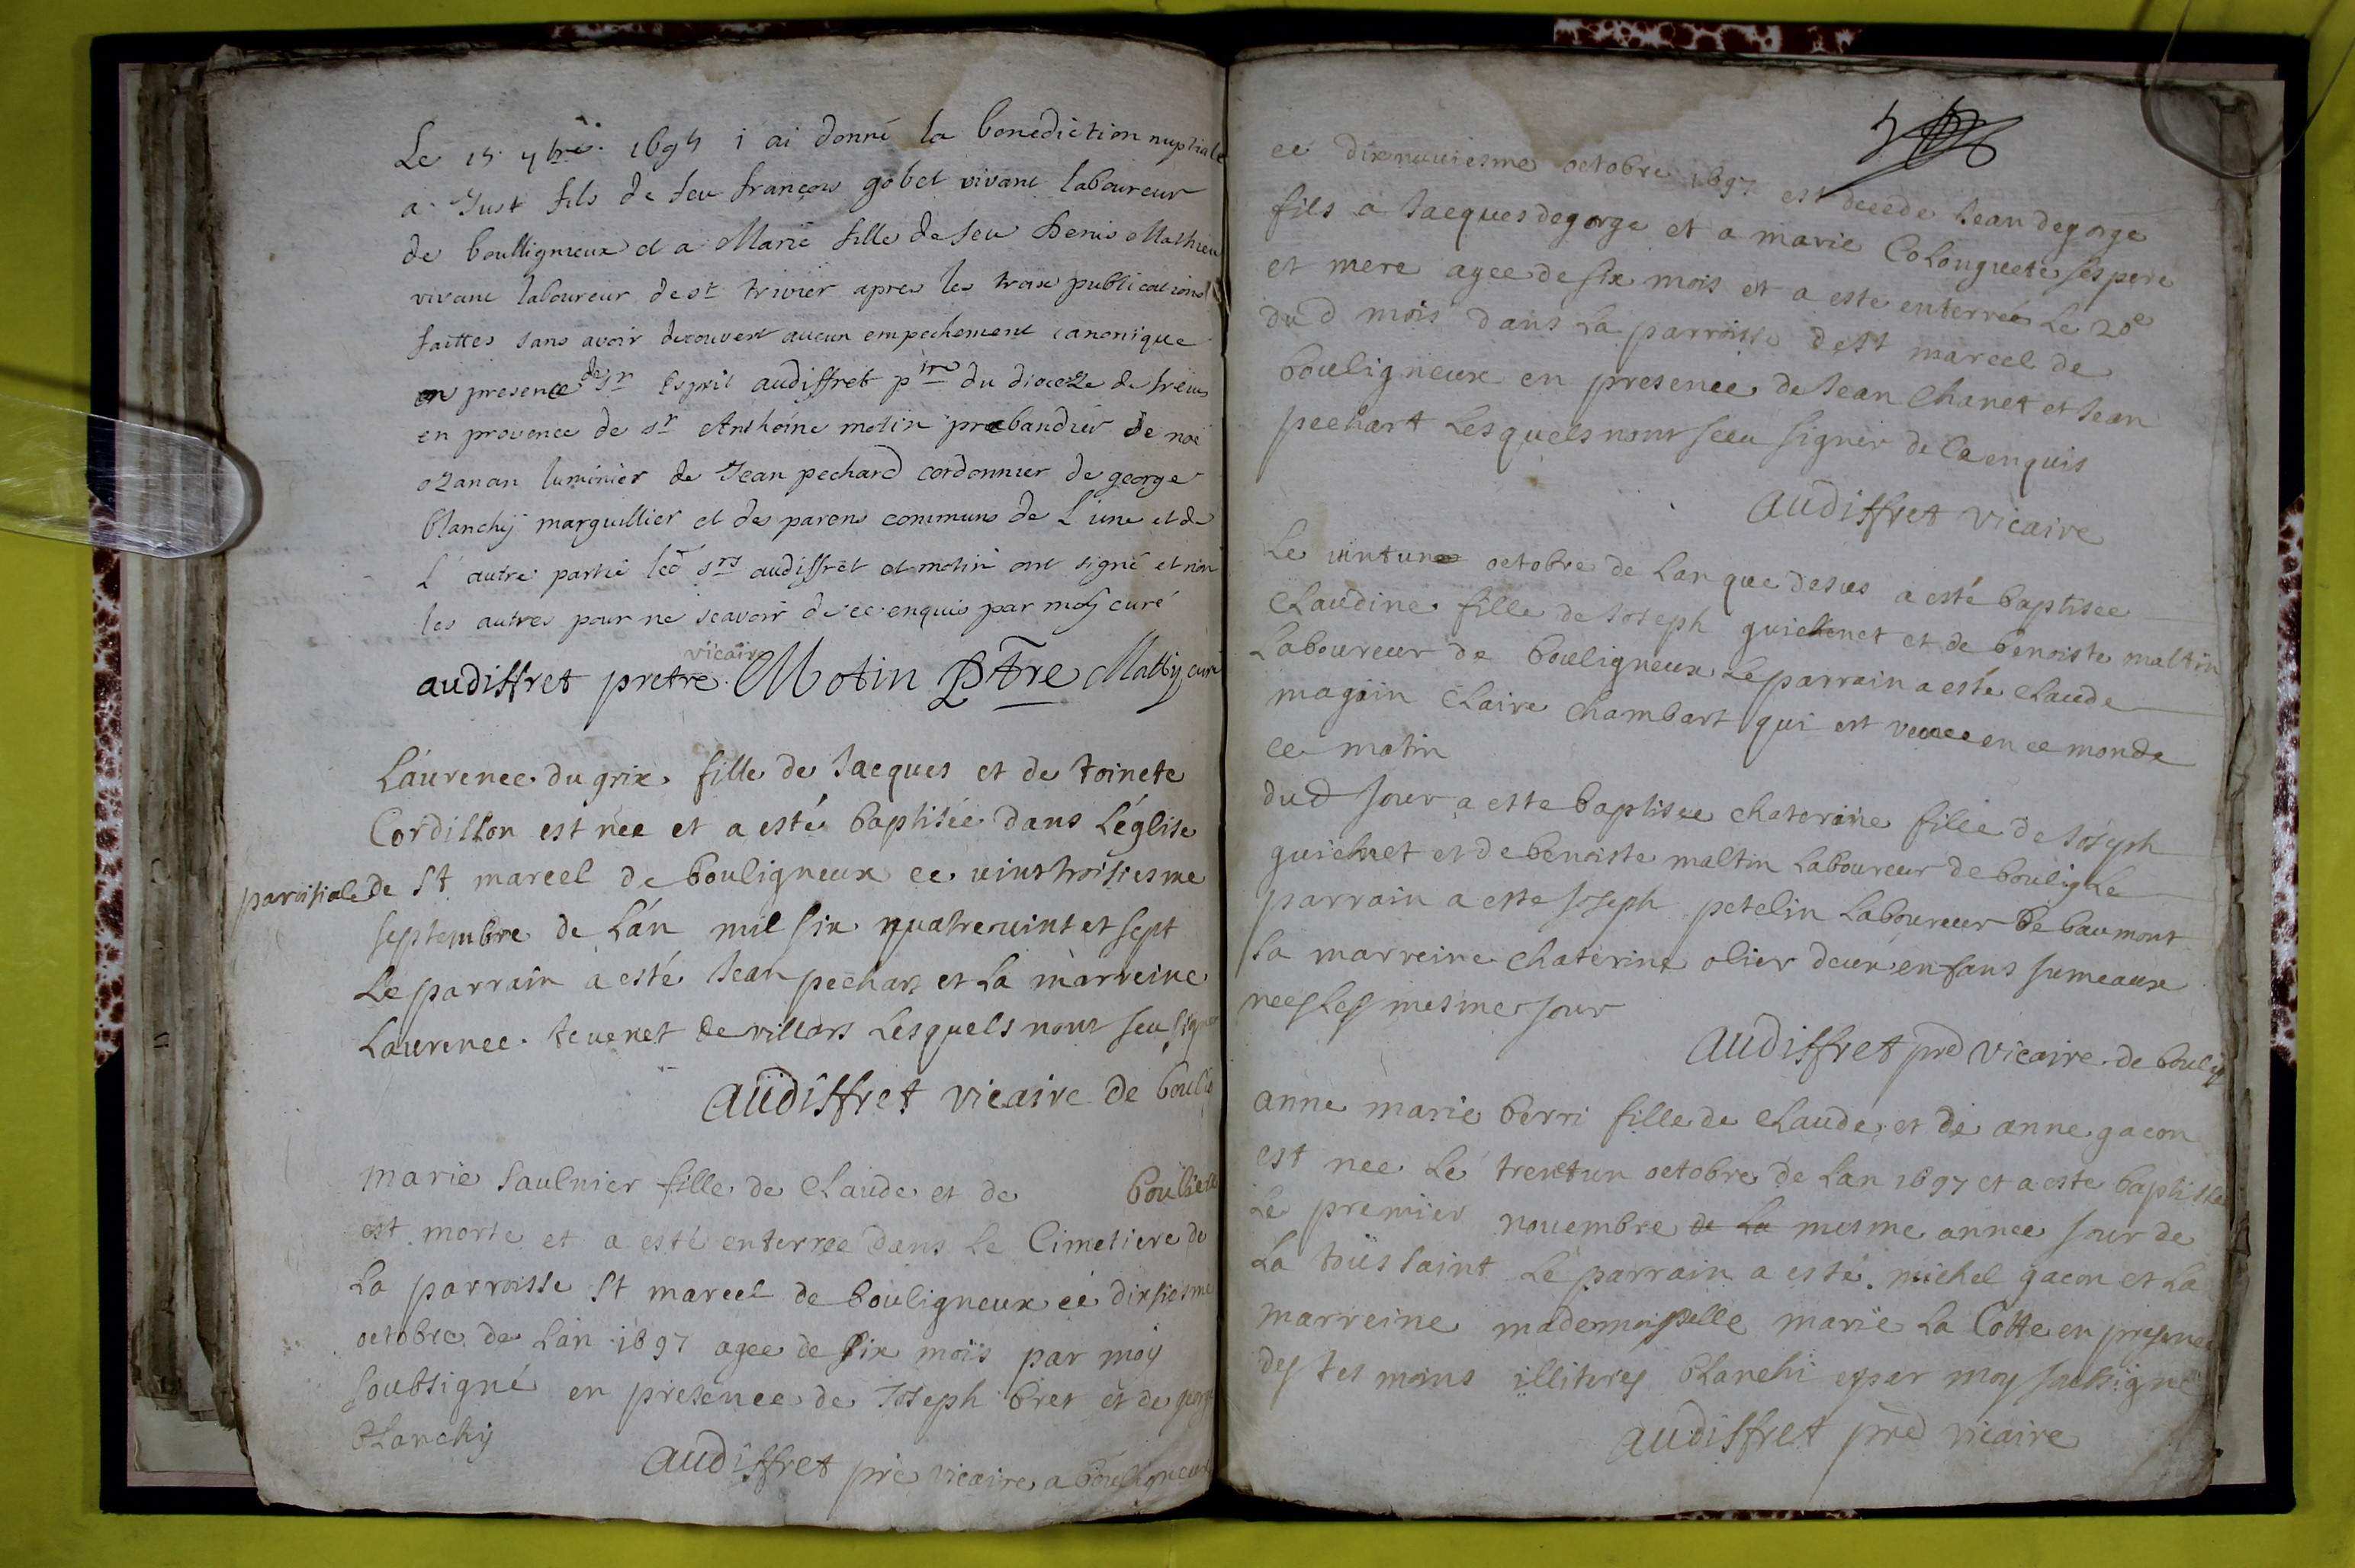 Le 15 7bre 1697 i ai donné la benediction nuptiale
a Just fils de feu françois gobet vivant laboureur
de boulligneux et a Marie fille de feu Denis Mathieu
vivant laboureur de st trivier apres les trois publications
faittes sans avoir decouvert aucun empechement canonique
en presence de sr Esprit audiffret ptre du dioceze de freius
en provence de sr Anthoine motin prebandier de noe
ozanan luminier de Jean pechard cordonnier de george
blanchÿ marguillier et des parens communs de L'une et de
L'autre partie led srs audiffret et motin ont signé et non
les autres pour ne scavoir de ce enquis par moÿ curé
vicaire
audiffret pretre Motin Ptre Matty curé
Laurence dugrix fille de Jacques et de toinete
Cordillon est née et a esté baptisée dans L'église
paroisiale de St marcel de bouligneux ce vintroisiesme
septembre de L'an mil six quatrevint et sept
Le parrain a esté Jean pechart et La marreine
Laurence tevenet de villars Lesquels nont seu signer
audiffret vicaire de boulig
marie Saulnier fille de Claude et de bouliere
est morte et a esté enterree dans Le Cimetiere de
La parroisse St marcel de bouligneux ce dixsiesme
octobre de Lan 1697 agee de six moïs par moy
soubsigné en presence de Joseph bret et de george
blanchÿ
audiffret pre vicaire a bouligneux
ce dixnauiesme octobre 1697 est decede Jean degorge
fils a Jacques degorge et a marie Colonguete ses pere
et mere agee de six mois et a este enterrée Le 20e
dud mois dans La parroisse de St marcel de
bouligneux en presence de Jean Chanet et Jean
pechart Lesquels nont sceu signer de Ce enquis
audiffret vicaire
Le vintune octobre de Lan que desus a esté baptisee
Claudine fille de Joseph guichenet et de benoiste maltin
Laboureur de bouligneux Le parrain a esté Claude
magïin Claire Chambart qui est venuee en ce monde
ce matin
dud Jour a este baptisee Chaterine fille de Joseph
guichnet et de benoiste maltin Laboureur de boulig Le
parrain a este Joseph petelin Laboureur de baumont
La marreine Chaterine olier deux enfans jumeaux
nees Les mesme jour
audiffret pred vicaire de boulig
anne marie berri fille de Claude et de anne gacon
est nee Le trentun octobre de Lan 1697 et a este baptisee
Le premier novembre de La mesme annee jour de
La toüssaint Le parrain a esté michel gacon et La
marreine mademoiselle marie La Cotte en presence
des tesmoins illiteres blanchi et par moy subsigné
audiffret pred vicaire